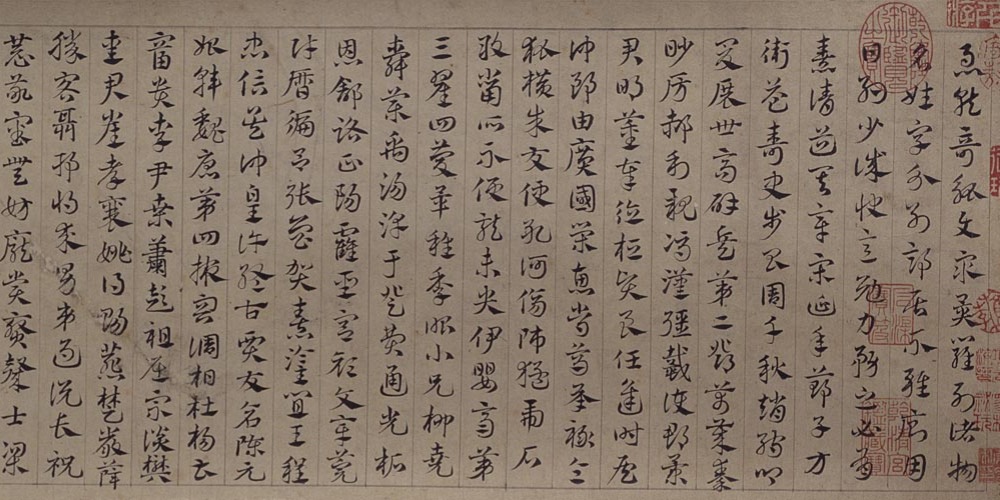 急就奇觚與衆異羅列諸物
名姓字分別部居不雜厠用
日約少誠快意勉力務之必有
憙請道其章宋延年鄭子方
衛益壽史步昌周千秋趙孺卿
爰展世高辟兵第二鄧萬歲秦
眇房郝利親馮漢彊戴護郡景
君明董奉德桓賢良任逢時侯
仲郎由廣國榮惠常烏承祿令
狐橫朱交便孔何傷師猛虎石
敢當所不侵龍未央伊嬰齊第
三翟回慶畢稚季昭小兄柳堯
舜藥禹湯淳于登費通光柘
恩舒路正陽霍聖宮顏文章莞
財曆徧呂張魯賀憙灌宜王程
忠信吳仲皇許終古賈友倉陳元
始韓魏唐第四掖容調柏杜楊曹
富貴李尹桑蕭彭祖屈宗談樊
愛君崔孝襄姚得賜燕楚嚴薛
勝客聶邘將求男弟過說長祝
恭敬審無妨龐賞士梁